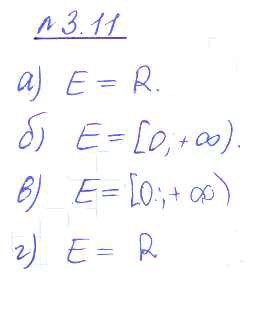 №3.11
а) E = R.
б) E = [0; +∞).
в) E = [0; +∞)
г) E = R